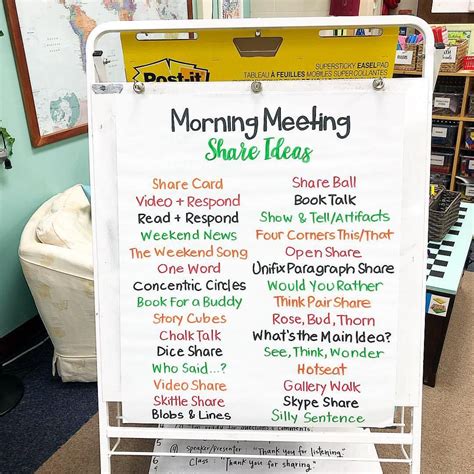 SUPERSTICKY EASELPAD
TABLEAU À FEUILLES MOBILES SUPERCOLLANTES
Post-it
Morning Meeting
Share Ideas
Share Card
Video + Respond
Read + Respond
Weekend News
The Weekend Song
One Word
Concentric Circles
Book For a Buddy
Story Cubes
Chalk Talk
Dice Share
Who Said...?
Video Share
Skittle Share
Blobs & Lines
Share Ball
Book Talk
Show & Tell/Artifacts
Four Corners This/That
Open Share
Unifix Paragraph Share
Would You Rather
Think Pair Share
Rose, Bud, Thorn
What's the Main Idea?
See, Think, Wonder
Hotseat
Gallery Walk
Skype Share
Silly Sentence
speaker/presenter "Thank you for listening."
Class "Thank you for sharing."